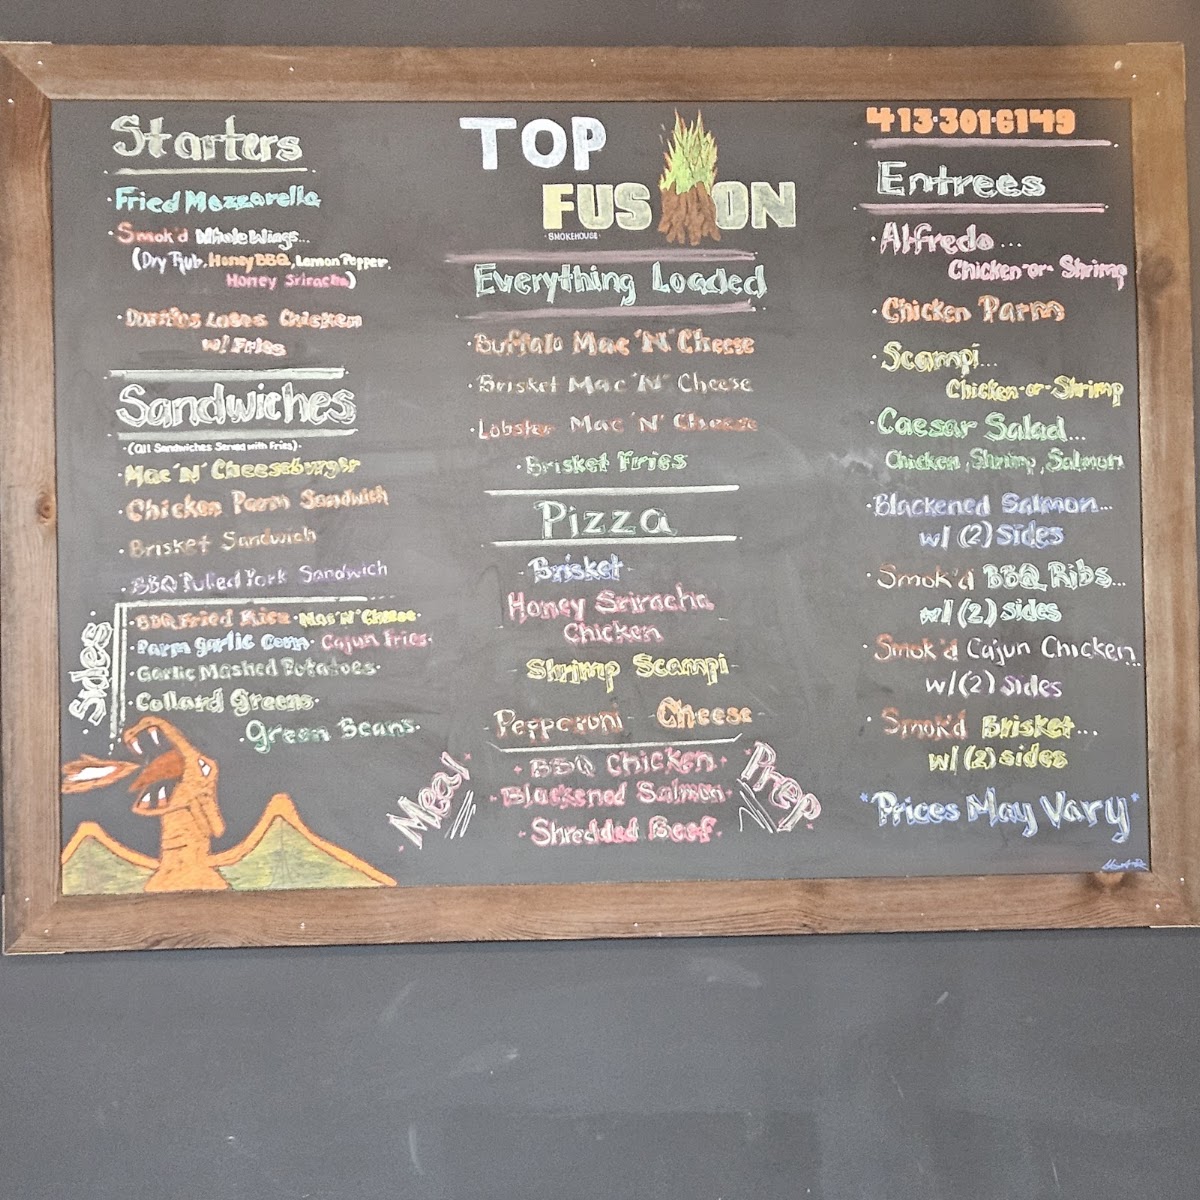 Starters
·Fried Mozzarella
·Smok'd Whole Wings...
(Dry Rub, Honey BBQ, Lemon Pepper,
Honey Sriracha)
Chicken
w/ Fries
Sandwiches
·(All Sandwiches Served with Fries)·
·Mac 'N' Cheeseburger
·Chicken Parm Sandwich
·Brisket Sandwich
·BBQ Pulled Pork Sandwich
·Sides·
·BBQ Fried Rice·Mac 'N' Cheese·
·Parm Garlic Corn·Cajun Fries·
·Garlic Mashed Potatoes·
·Collard Greens·
·Green Beans·
TOP
FUSION
·SMOKEHOUSE·
Everything Loaded
·Buffalo Mac 'N' Cheese
·Brisket Mac 'N' Cheese
·Lobster Mac 'N' Cheese
·Brisket Fries
Pizza
-Brisket-
Honey Sriracha
Chicken
-Shrimp Scampi-
-Pepperoni- -Cheese-
·Meal Prep·
·BBQ Chicken·
·Blackened Salmon·
·Shredded Beef·
413·301·6149
Entrees
·Alfredo...
Chicken-or-Shrimp
·Chicken Parm
·Scampi...
Chicken-or-Shrimp
·Caesar Salad...
Chicken, Shrimp, Salmon
·Blackened Salmon...
w/ (2) Sides
·Smok'd BBQ Ribs...
w/ (2) Sides
·Smok'd Cajun Chicken...
w/ (2) Sides
·Smok'd Brisket...
w/ (2) Sides
*Prices May Vary*